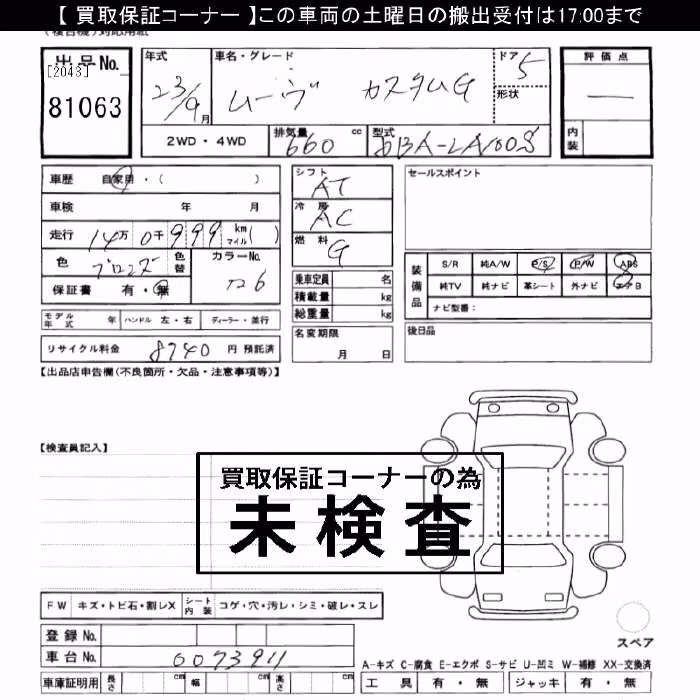 【 買取保証コーナー 】この車両の土曜日の搬出受付は17:00まで
出品No.
[2043]
81063
年式
23/9月
車名・グレード
ムーヴ カスタムG
ドア 5
形状
評価点
—
内装
2WD・4WD
排気量 660 cc
型式 DBA-LA100S
車歴 自家用・( )
車検 年 月
走行 14万 0千 999 km マイル( )
色 ブロンズ
色替
カラーNo.
T26
保証書 有・無
シフト AT
冷房 AC
燃料 G
乗車定員 名
積載量 kg
総重量 kg
セールスポイント
装備品
S/R 純A/W P/S P/W ABS
純TV 純ナビ 革シート 外ナビ エアB
ナビ型番：
モデル年式 年 ハンドル 左・右 ディーラー・並行
名変期限
月 日
後日品
リサイクル料金 8740 円 預託済
【出品店申告欄(不良箇所・欠品・注意事項等)】
【検査員記入】
買取保証コーナーの為
未検査
FW キズ・トビ石・割レX シート内装 コゲ・穴・汚レ・シミ・破レ・スレ
登録No.
車台No. 0073911
スペア
A-キズ C-腐食 E-エクボ S-サビ U-凹ミ W-補修 XX-交換済
車庫証明用 長さ cm 幅 cm 高さ cm
工具 有・無 ジャッキ 有・無